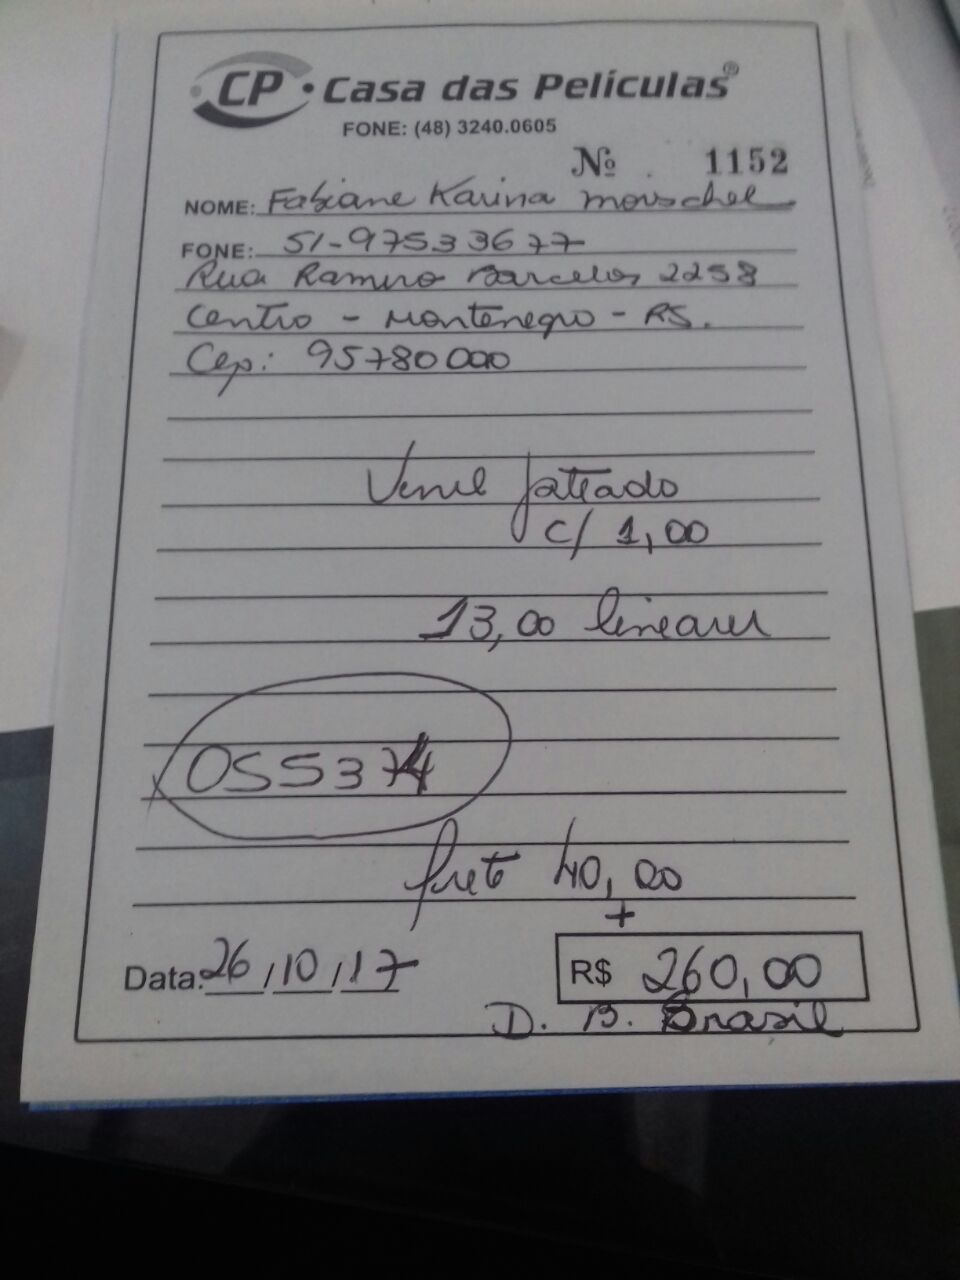 CP • Casa das Películas®
FONE: (48) 3240.0605
Nº 1152
NOME: Fabiane Karina Mouschel
FONE: 51-97533677
Rua Ramiro Barcelos 2258
Centro - Montenegro - RS.
Cep: 95780000
Venil Jateado
c/ 1,00
13,00 lineares
OSS374
frete 40,00
+
Data: 26/10/17 R$ 260,00
D. B. Brasil